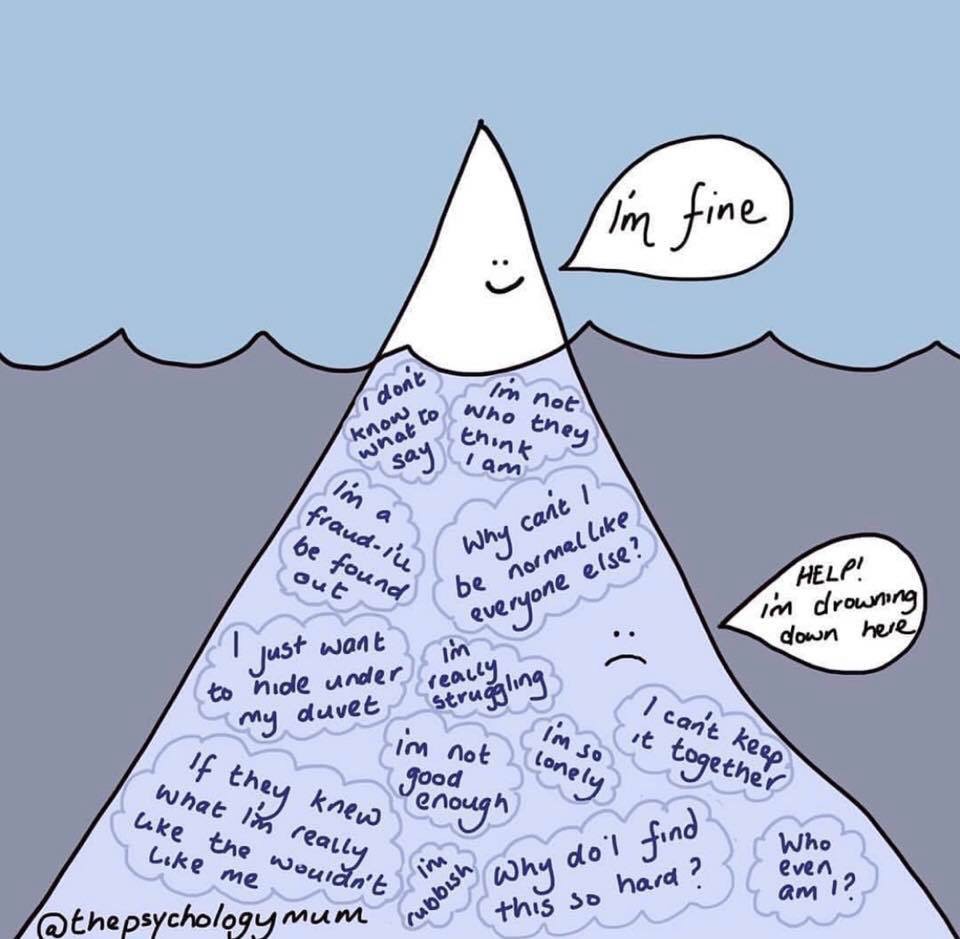 I'm fine
I don't
know
what to
say
I'm not
who they
think
I am
I'm a
fraud-i'll
be found
out
Why can't I
be normal like
everyone else?
HELP!
i'm drowning
down here
I just want
to hide under
my duvet
i'm
really
struggling
I can't keep
it together
If they knew
what I'm really
like the wouldn't
like me
i'm not
good
enough
i'm so
lonely
i'm
rubbish
Why do i find
this so hard?
Who
even
am I?
@thepsychologymum